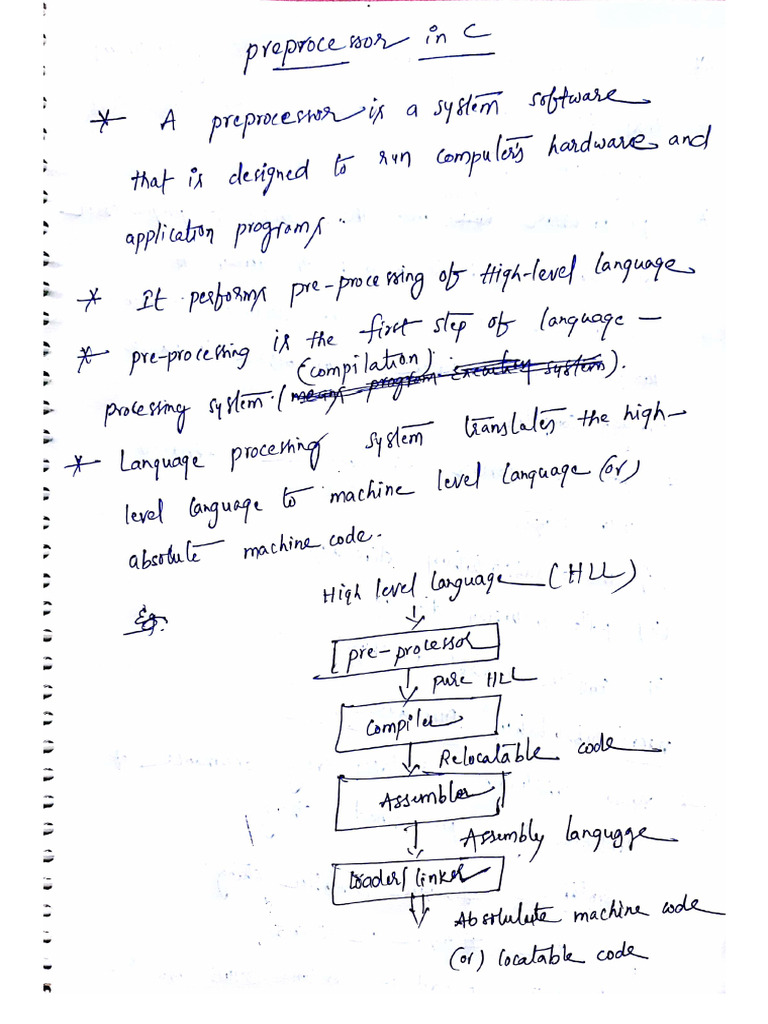 preprocessor in C
* A preprocessor is a system software
that is designed to run computer's hardware and
application programs.
* It performs pre-processing of High-level language
* pre-processing is the first step of language -
(compilation)
processing system. (means program executing system).
* Language processing system translates the high-
level language to machine level language (or)
absolute machine code.
High level language (HLL)
Eg:
pre-processor
pure HLL
Compiler
Relocatable code
Assembler
Assembly langugge
Loader/linker
Absolulute machine code
(or) locatable code